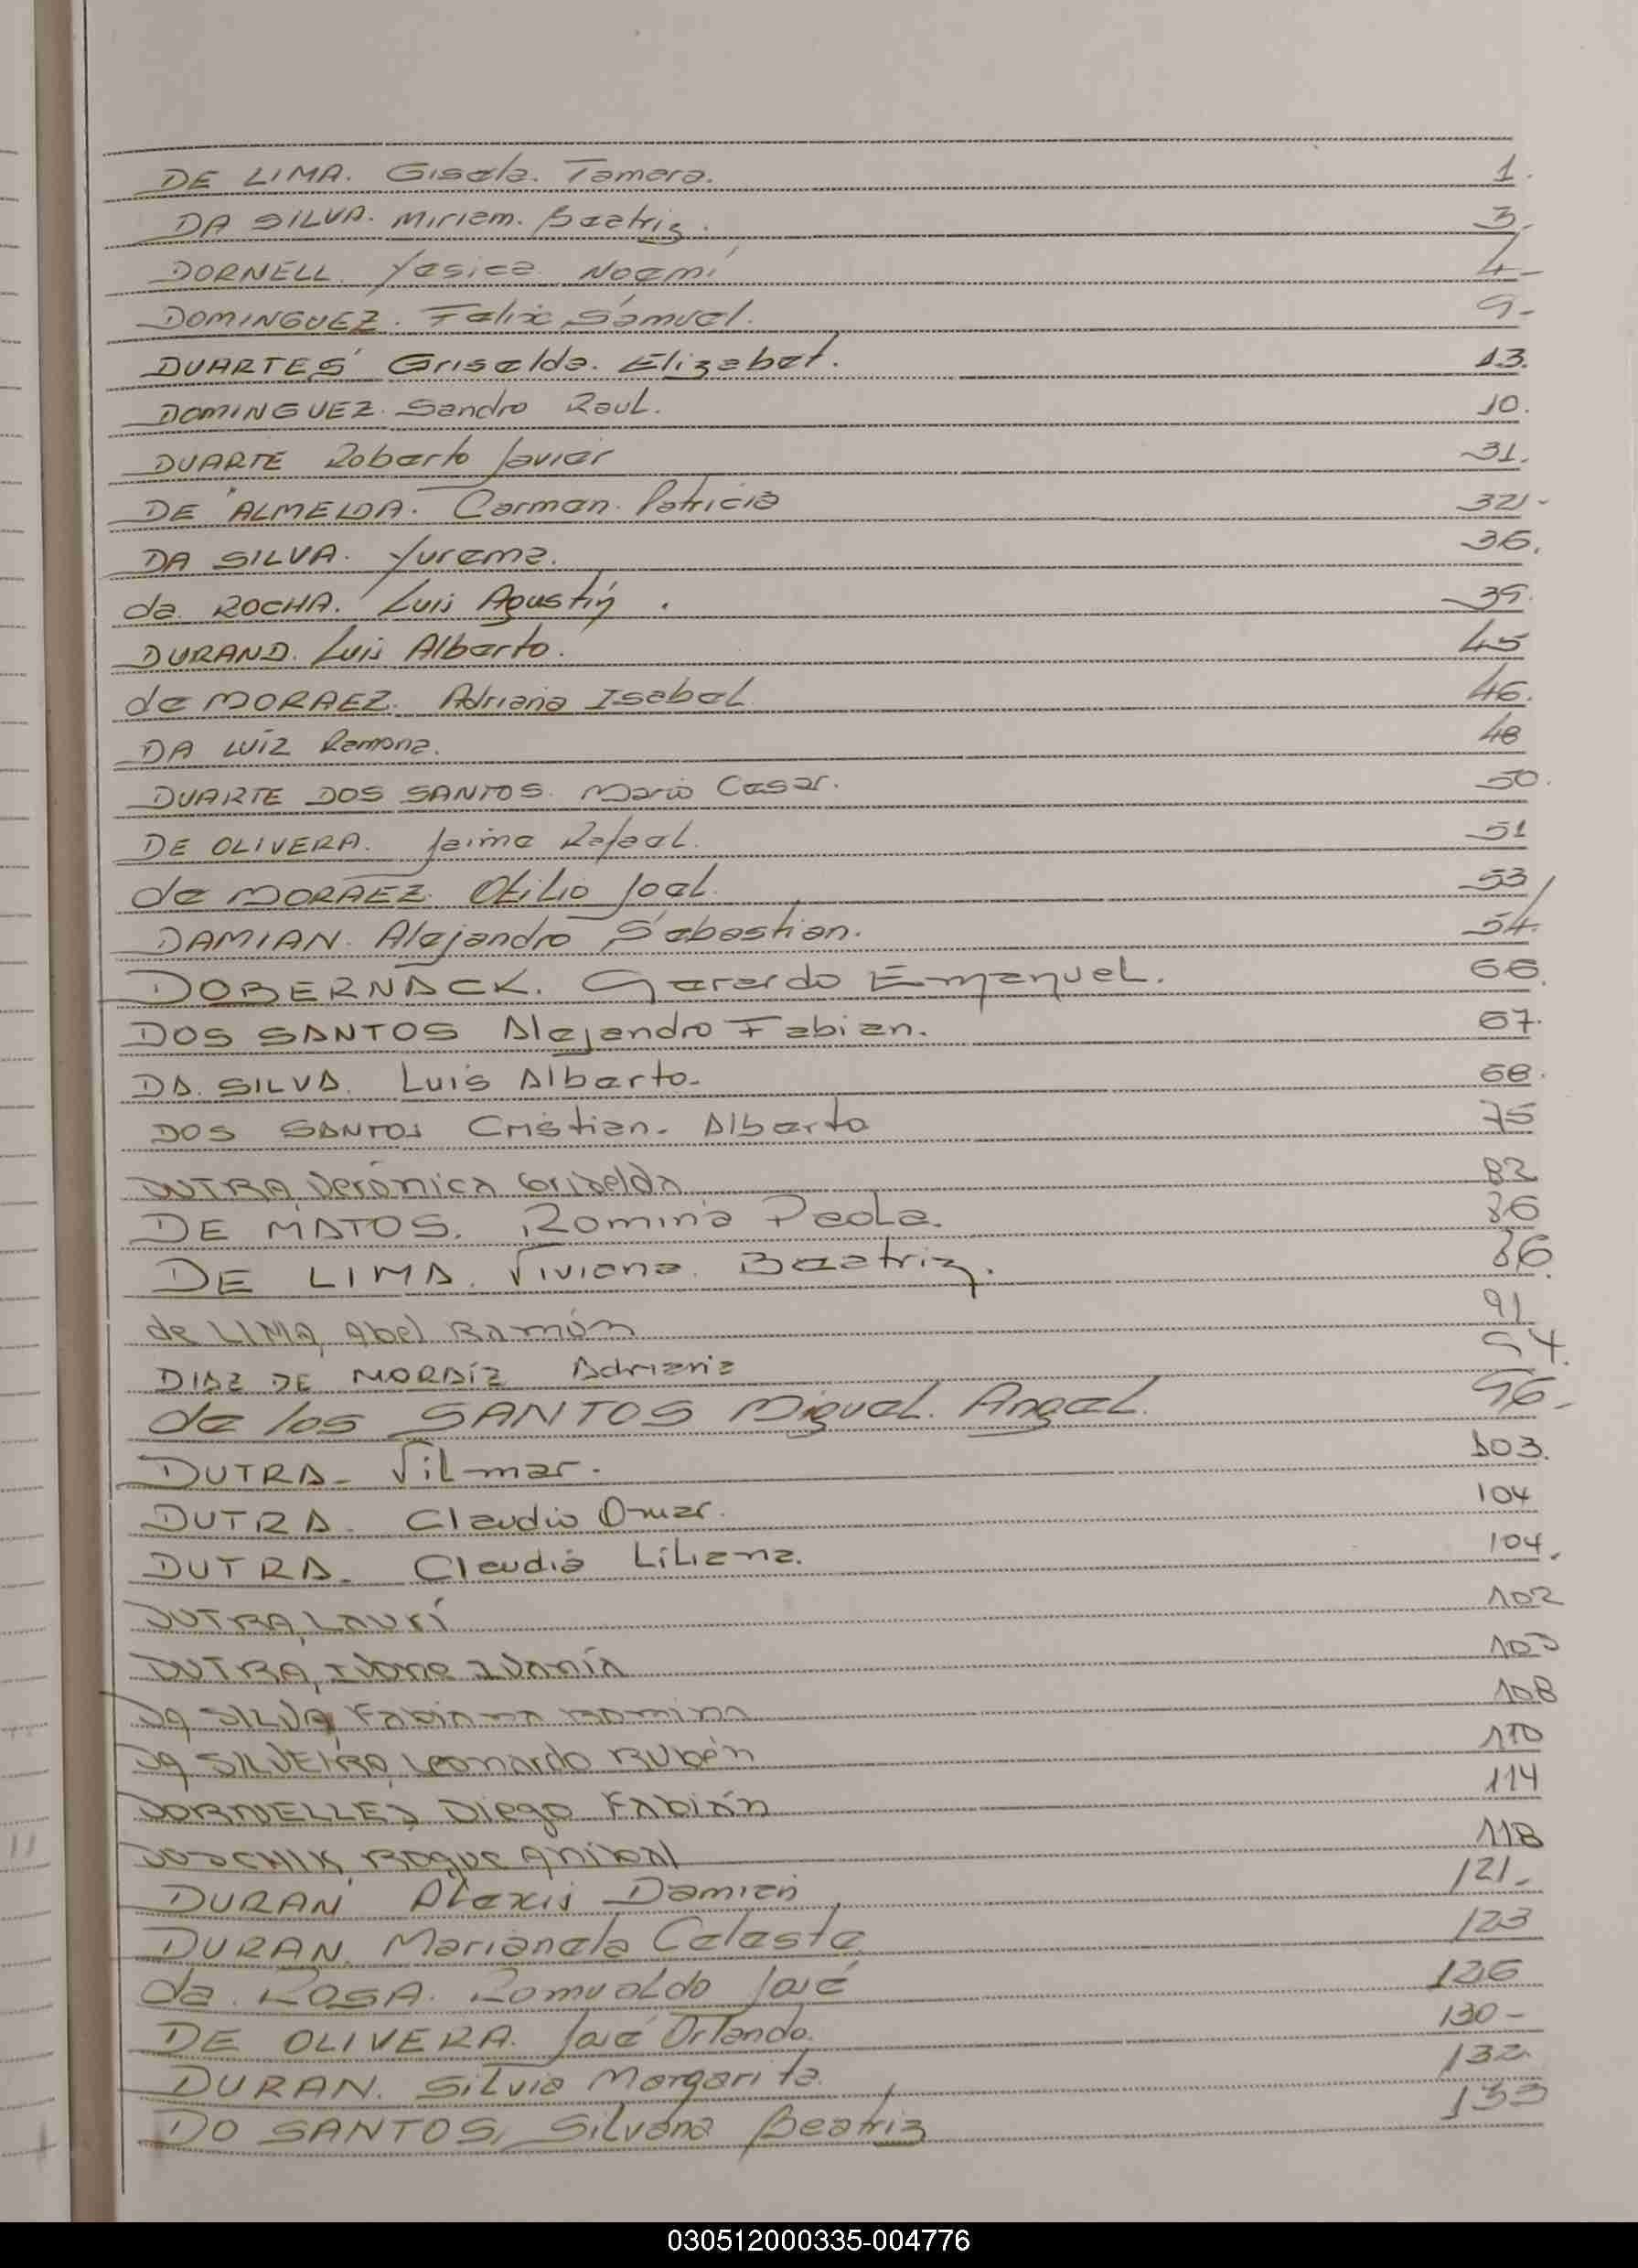 DE LIMA. Gisela. Tamara. 1.
DA SILVA. Miriam. Beatriz. 3.
DORNELL. Yesica Noemi 4-
DOMINGUEZ. Felix Samuel. 9-
DUARTES Griselda. Elizabet. 13.
DOMINGUEZ. Sandro Raul. 10.
DUARTE Roberto Javier 31.
DE ALMEIDA. Carmen. Patricia 32-
DA SILVA. Yurema. 36.
da. ROCHA. Luis Agustín. 39.
DURAND. Luis Alberto. 45
de MORAEZ. Adriana Isabel 46.
DA LUIZ Ramona. 48
DUARTE DOS SANTOS. Mario Cesar. 50.
DE OLIVERA. Jaime Rafael. 51
de MORAEZ. Otilio Joel. 53
DAMIAN. Alejandro Sebastian. 54.
DOBERNACK. Gerardo Emanuel. 66.
DOS SANTOS Alejandro Fabian. 67.
DA. SILVA. Luis Alberto- 68.
DOS SANTOS Cristian- Alberto 75
DUTRA, Verónica Griselda 82
DE MATOS. Romina Paola. 86
DE LIMA. Viviana. Beatriz. 86.
de LIMA, Abel Ramón 91
DIAZ DE MORAÍZ Adriana 94.
de los SANTOS Miguel. Angel. 96-
DUTRA- Vilmar. 103.
DUTRA. Claudio Omar. 104
DUTRA. Claudia Liliana. 104.
DUTRA, LAURÍ 102
DUTRA, Ivone Ivanía 103
Da SILVA, Fabiana Romina 108
Da SILVEIRA, Leonardo Rubén 110
DORNELLES, Diego Fabián 114
Roque Anibal 118
DURAN Alexis Damien 121-
DURAN. Marianela Celeste 123
da. ROSA. Romualdo José 126
DE OLIVERA. José Orlando. 130-
DURAN. Silvia Margarita. 132
DO SANTOS, Silvana Beatriz 133
030512000335-004776